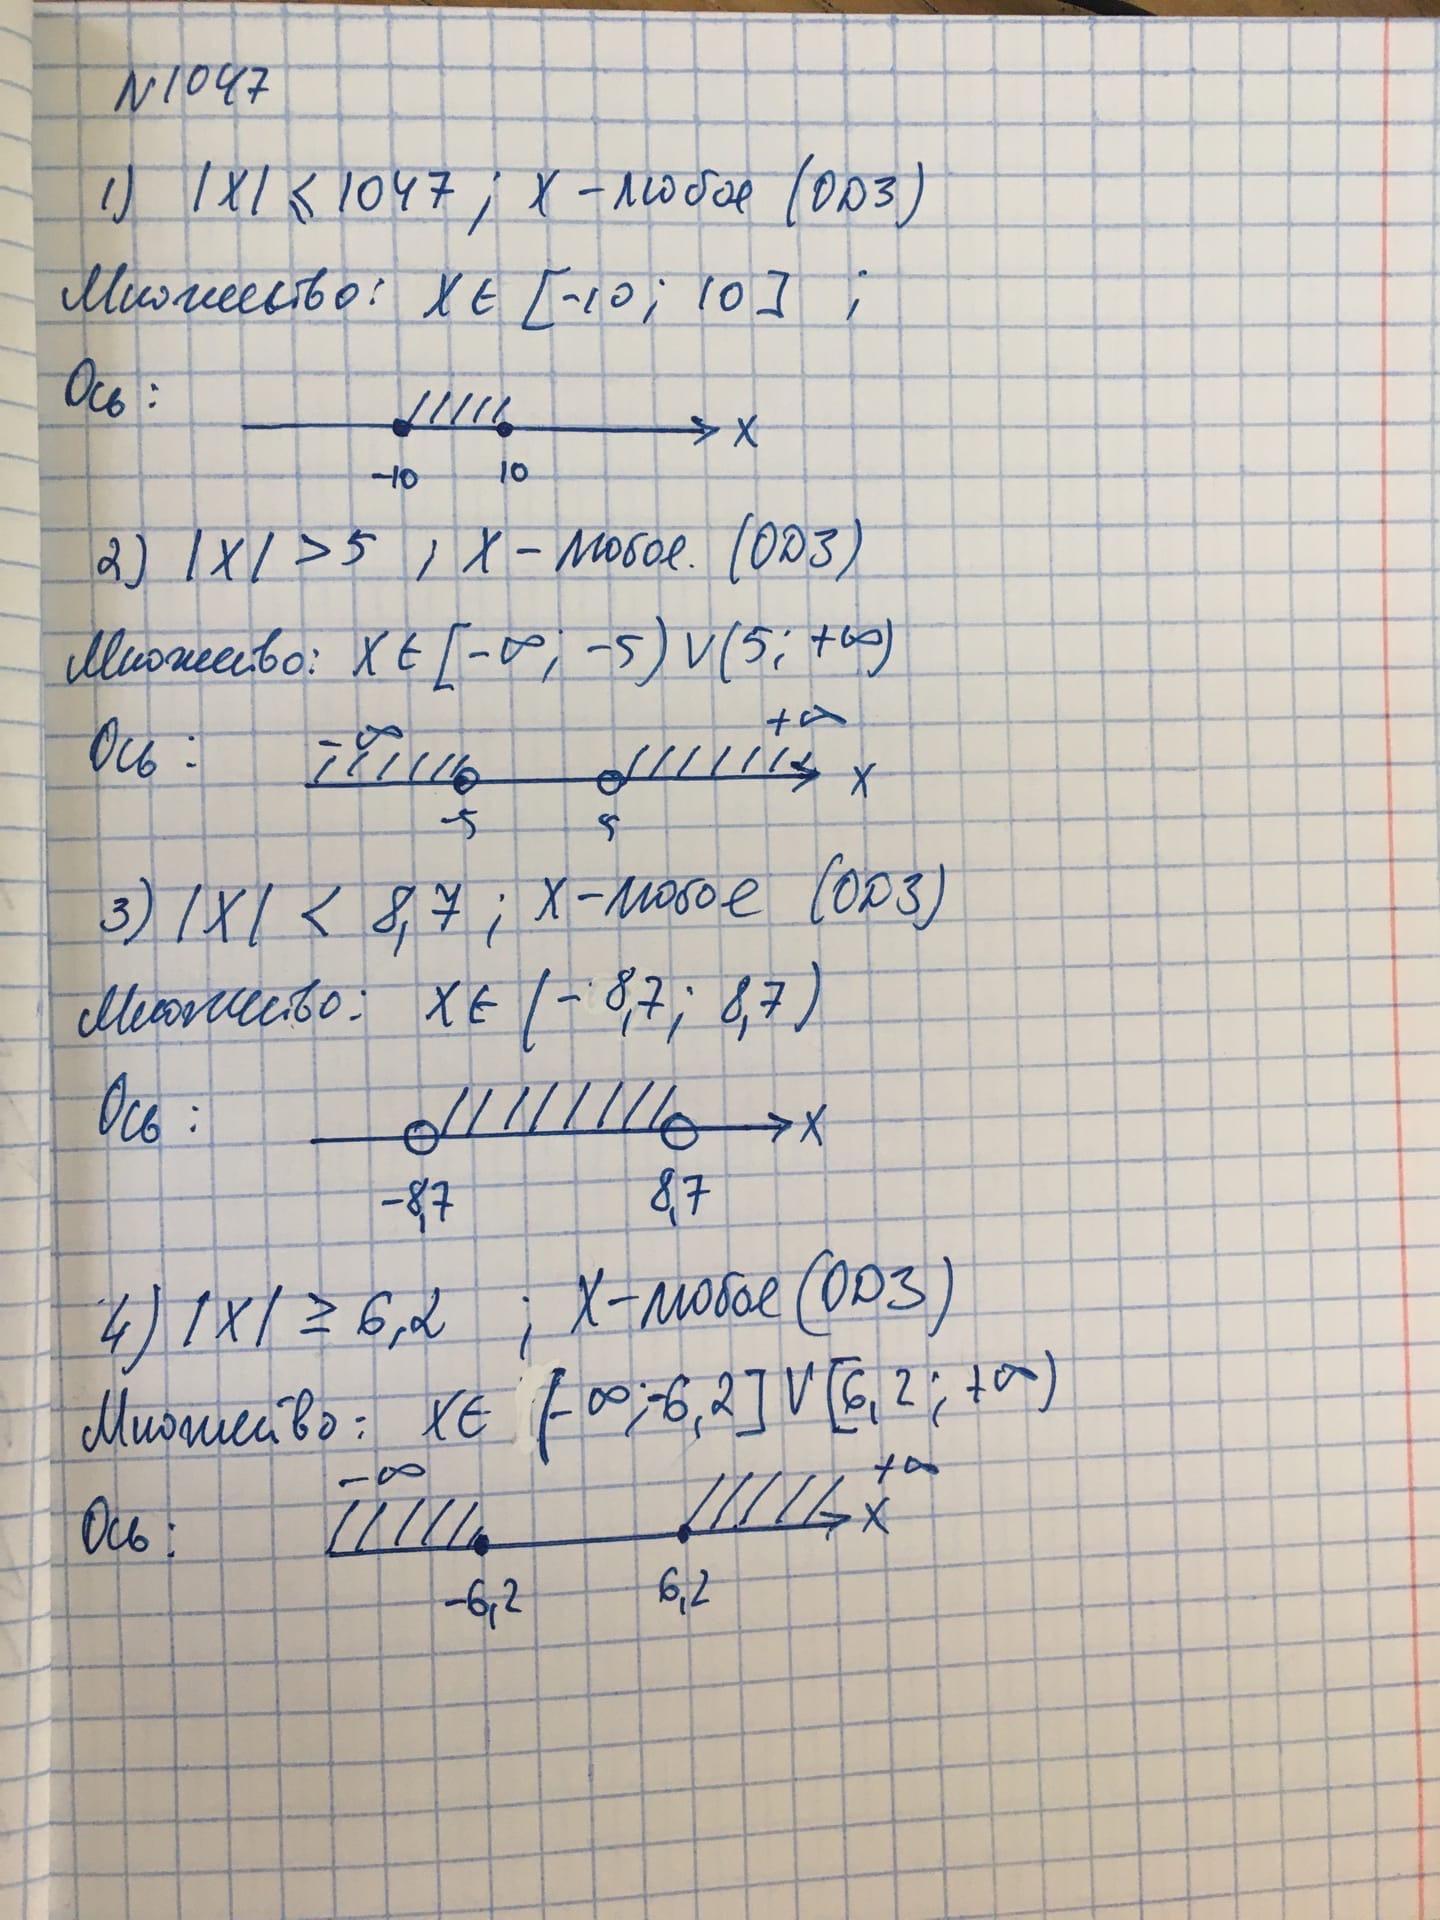 N1047
1) |X| ⩽ 1047 ; X – любое (ОДЗ)
Множество: X ∈ [-10; 10] ;
Ось:
X
-10 10
2) |X| > 5 ; X – любое. (ОДЗ)
Множество: X ∈ [-∞; -5) V (5; +∞)
-∞ +∞
Ось:
X
-5 5
3) |X| < 8,7 ; X – любое (ОДЗ)
Множество: X ∈ (-8,7; 8,7)
Ось:
X
-8,7 8,7
4) |X| ≥ 6,2 ; X – любое (ОДЗ)
Множество: X ∈ (-∞; -6,2] V [6,2; +∞)
-∞ +∞
Ось:
X
-6,2 6,2